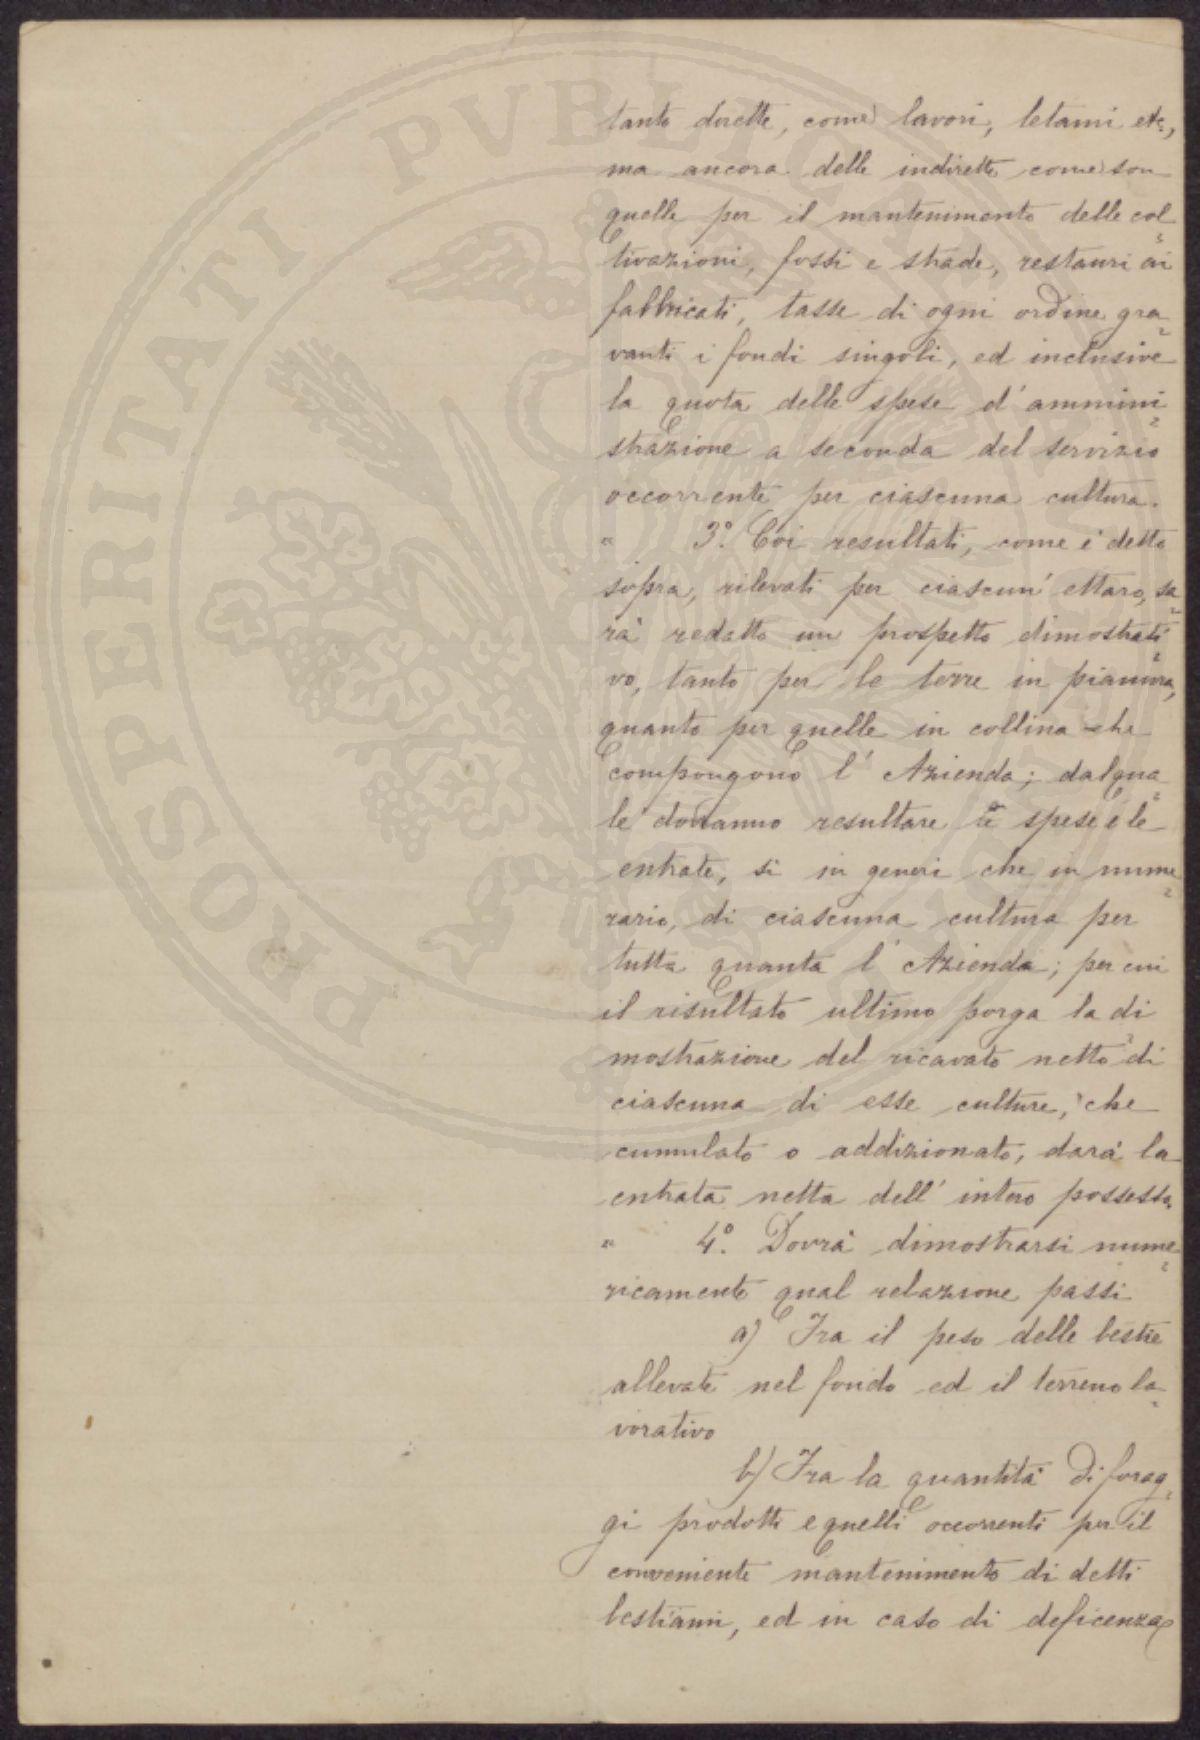 tanto dirette, come lavori, letami etc,
ma ancora delle indirette come son
quelle per il mantenimento delle col
tivazioni, fossi e strade, restauri ai
fabbricati, tasse di ogni ordine gra
vanti i fondi singoli, ed inclusive
la quota delle spese d'ammini
strazione a seconda del servizio
occorrente per ciascuna cultura.
" 3.º Coi resultati, come è detto
sopra, rilevati per ciascun' ettaro, sa
rà redatto un prospetto dimostrati
vo, tanto per le terre in pianura,
quanto per quelle in collina che
compongono l'Azienda; dal qua
le dovranno resultare le spese e le
entrate, sì in generi che in nume
rario, di ciascuna cultura per
tutta quanta l'Azienda; per cui
il risultato ultimo porga la di
mostrazione del ricavato netto di
ciascuna di esse culture, che
cumulato o addizionato, darà la
entrata netta dell'intero possesso.
" 4.º Dovrà dimostrarsi nume
ricamente qual relazione passi
a) Fra il peso delle bestie
allevate nel fondo ed il terreno la
vorativo
b) Fra la quantità di forag
gi prodotti e quelli occorrenti per il
conveniente mantenimento di detti
bestiami, ed in caso di deficenza
PROSPERITATI PVBLICAE